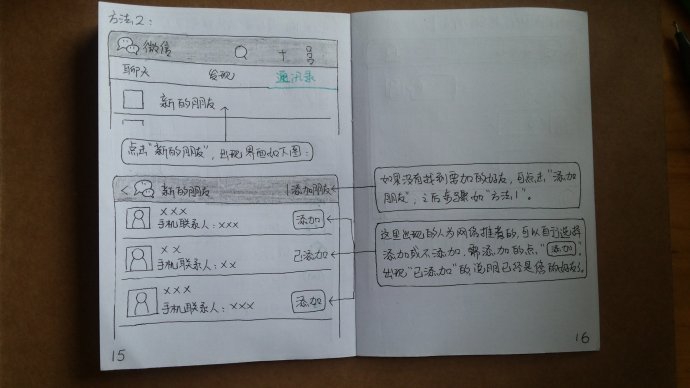 方法2：
微信
聊天 发现 通讯录
新的朋友
点击"新的朋友"，出现界面如下图：
< 新的朋友 添加朋友
×××
手机联系人：××× 添加
××
手机联系人：×× 已添加
×××
手机联系人：××× 添加
15
如果没有找到需加的好友，可点击"添加
朋友"，之后步骤如"方法1"。
这里出现的人为网络推荐的，可以自行选择
添加或不添加，需添加的点"添加"，
出现"已添加"的说明已经是您的好友。
16